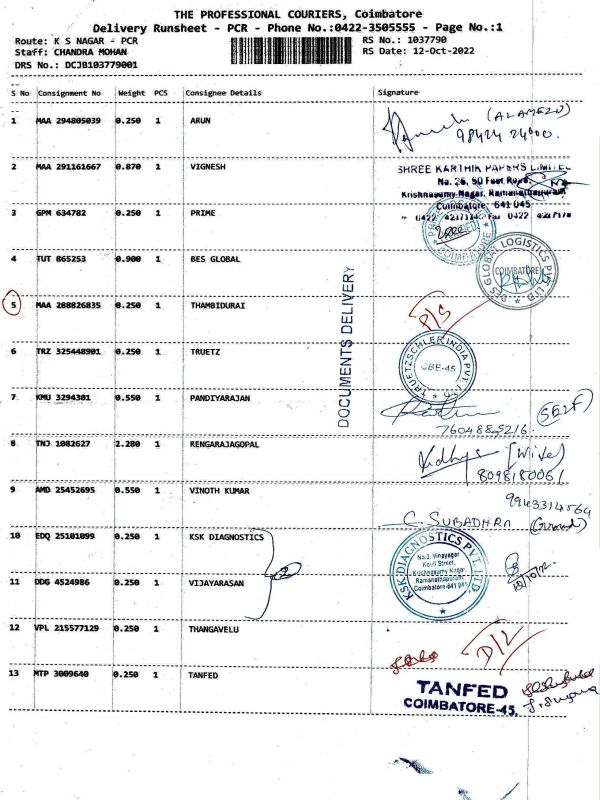 THE PROFESSIONAL COURIERS, Coimbatore
Delivery Runsheet - PCR - Phone No.:0422-3505555 - Page No.:1
Route: K S NAGAR - PCR RS No.: 1037790
Staff: CHANDRA MOHAN RS Date: 12-Oct-2022
DRS No.: DCJB103779001
S No Consignment No Weight PCS Consignee Details Signature
1 MAA 294805039 0.250 1 ARUN
(ALAMELU)
98424 24000.
2 MAA 291161667 0.870 1 VIGNESH
SHREE KARTHIK PAPERS LIMITED
No. 26, 50 Feet Road,
Krishnasamy Nagar, Ramanathapuram
Coimbatore - 641 045
3 GPM 634782 0.250 1 PRIME
COIMBATORE
4 TUT 865253 0.900 1 BES GLOBAL
BES GLOBAL LOGISTICS PVT. LTD.
COIMBATORE
5 MAA 288826835 0.250 1 THAMBIDURAI
P/S
DOCUMENTS DELIVERY
6 TRZ 325448901 0.250 1 TRUETZ
TRUETZSCHLER INDIA PVT. LTD.
CBE-45
7 KMU 3294301 0.550 1 PANDIYARAJAN
(SELF)
7604885216.
8 TNJ 1082627 2.280 1 RENGARAJAGOPAL
Vidhya (Wife)
8098180061
9 AMD 25452695 0.550 1 VINOTH KUMAR
9943314564
C. SUBADHRA
10 EDQ 25101099 0.250 1 KSK DIAGNOSTICS
KSK DIAGNOSTICS PVT. LTD.
No.3, Vinayagar
Kovil Street,
Krishnasamy Nagar,
Ramanathapuram,
Coimbatore-641 045
12/10/22
11 DDG 4524986 0.250 1 VIJAYARASAN
12 VPL 215577129 0.250 1 THANGAVELU
D/L
13 MTP 3009640 0.250 1 TANFED
TANFED
COIMBATORE-45.